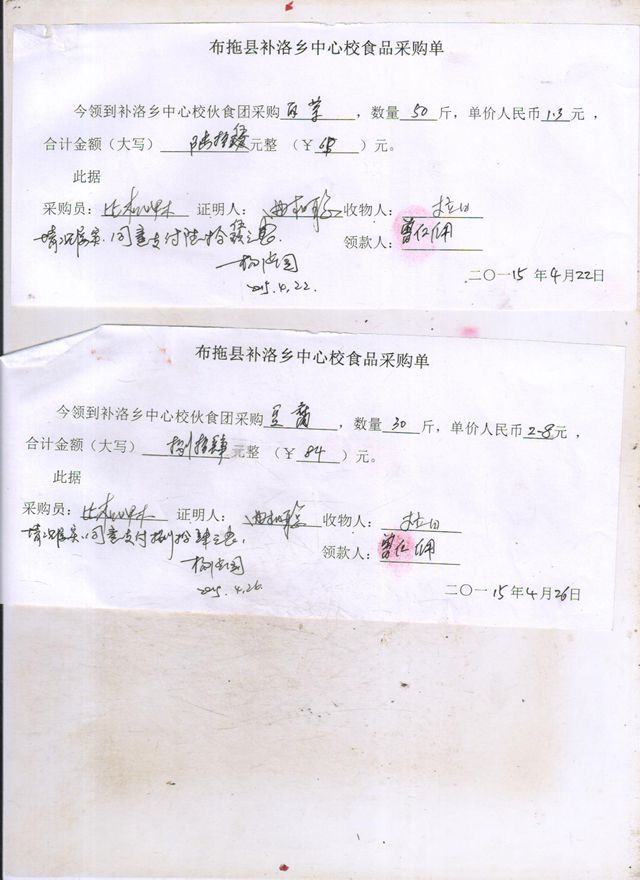 布拖县补洛乡中心校食品采购单
今领到补洛乡中心校伙食团采购 白菜 ，数量 50 斤，单价人民币 1.3 元，
合计金额（大写） 陆拾伍 元整 （￥ 65 ）元。
此据
采购员： 证明人： 收物人：
情况属实，同意支付陆拾伍元。
领款人： 曾仁
2015.4.22.
二〇一15年4月22日
布拖县补洛乡中心校食品采购单
今领到补洛乡中心校伙食团采购 豆腐 ，数量 30 斤，单价人民币 2-8 元，
合计金额（大写） 捌拾肆 元整 （￥ 84 ）元。
此据
采购员： 证明人： 收物人：
情况属实，同意支付捌拾肆元。
领款人： 曾仁
2015.4.26.
二〇一15年4月26日